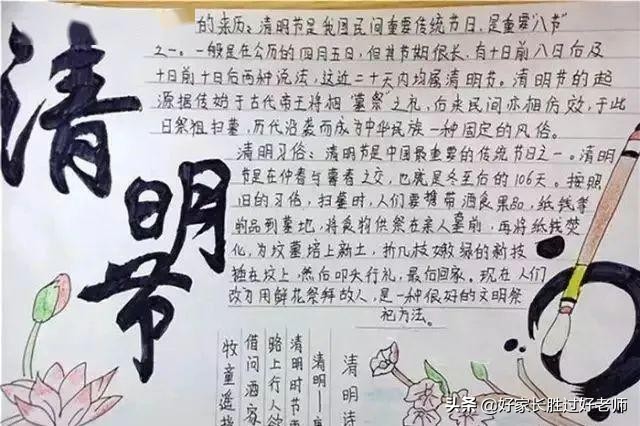 清明节
的来历：清明节是我国民间重要传统节日，是重要“八节”
之一。一般是在公历的四月五日，但其节期很长，有十日前八日后及
十日前十日后两种说法，这近二十天内均属清明节。清明节的起
源据传始于古代帝王将相“墓祭”之礼，后来民间亦相仿效，于此
日祭祖扫墓，历代沿袭而成为中华民族一种固定的风俗。
清明习俗：清明节是中国最重要的传统节日之一。清明
节是在仲春与暮春之交，也就是冬至后的106天。按照
旧的习俗，扫墓时，人们要携带酒食果品，纸钱等
的品到墓地，将食物供祭在亲人墓前，再将纸钱焚
化，为坟墓培上新土，折几枝嫩绿的新枝
插在坟上，然后叩头行礼，最后回家。现在人们
改为用鲜花祭拜故人，是一种很好的文明祭
祀方法。
清明诗
清明——唐
清明时节雨
路上行人欲
借问酒家
牧童遥指
头条 @好家长胜过好老师